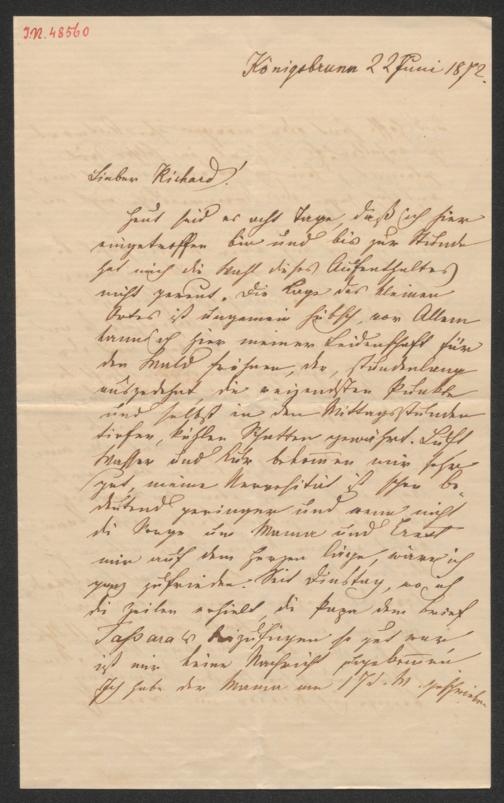 I.N. 48560
Königsbrunn 22 Juni 1872.
Lieber Richard!
Heut seid es acht Tage, daß ich hier
eingetroffen bin und bis zur Stunde
hat mich die Wahl dieses Aufenthaltes
nicht gereut. Die Lage des kleinen
Ortes ist ungemein hübsch, vor Allem
kann ich hier meiner Leidenschaft für
den Wald fröhnen, der, stundenlang
ausgedehnt, die reizendsten Punkte
und selbst in den Mittagsstunden
tiefen, kühlen Schatten gewährt. Luft
Wasser und Kur bekommen mir sehr
gut, meine Nervosität ist schon be-
deutend geringer und wenn nicht
die Sorge um Mama und Ernst
mir auf dem Herzen läge, wäre ich
ganz zufrieden. Seit Dinstag, wo ich
die Zeilen erhielt die Papa dem Brief
Tassara's beizufügen so gut war
ist mir keine Nachricht zugekommen.
Ich habe der Mama am 17 d. M. geschrieben